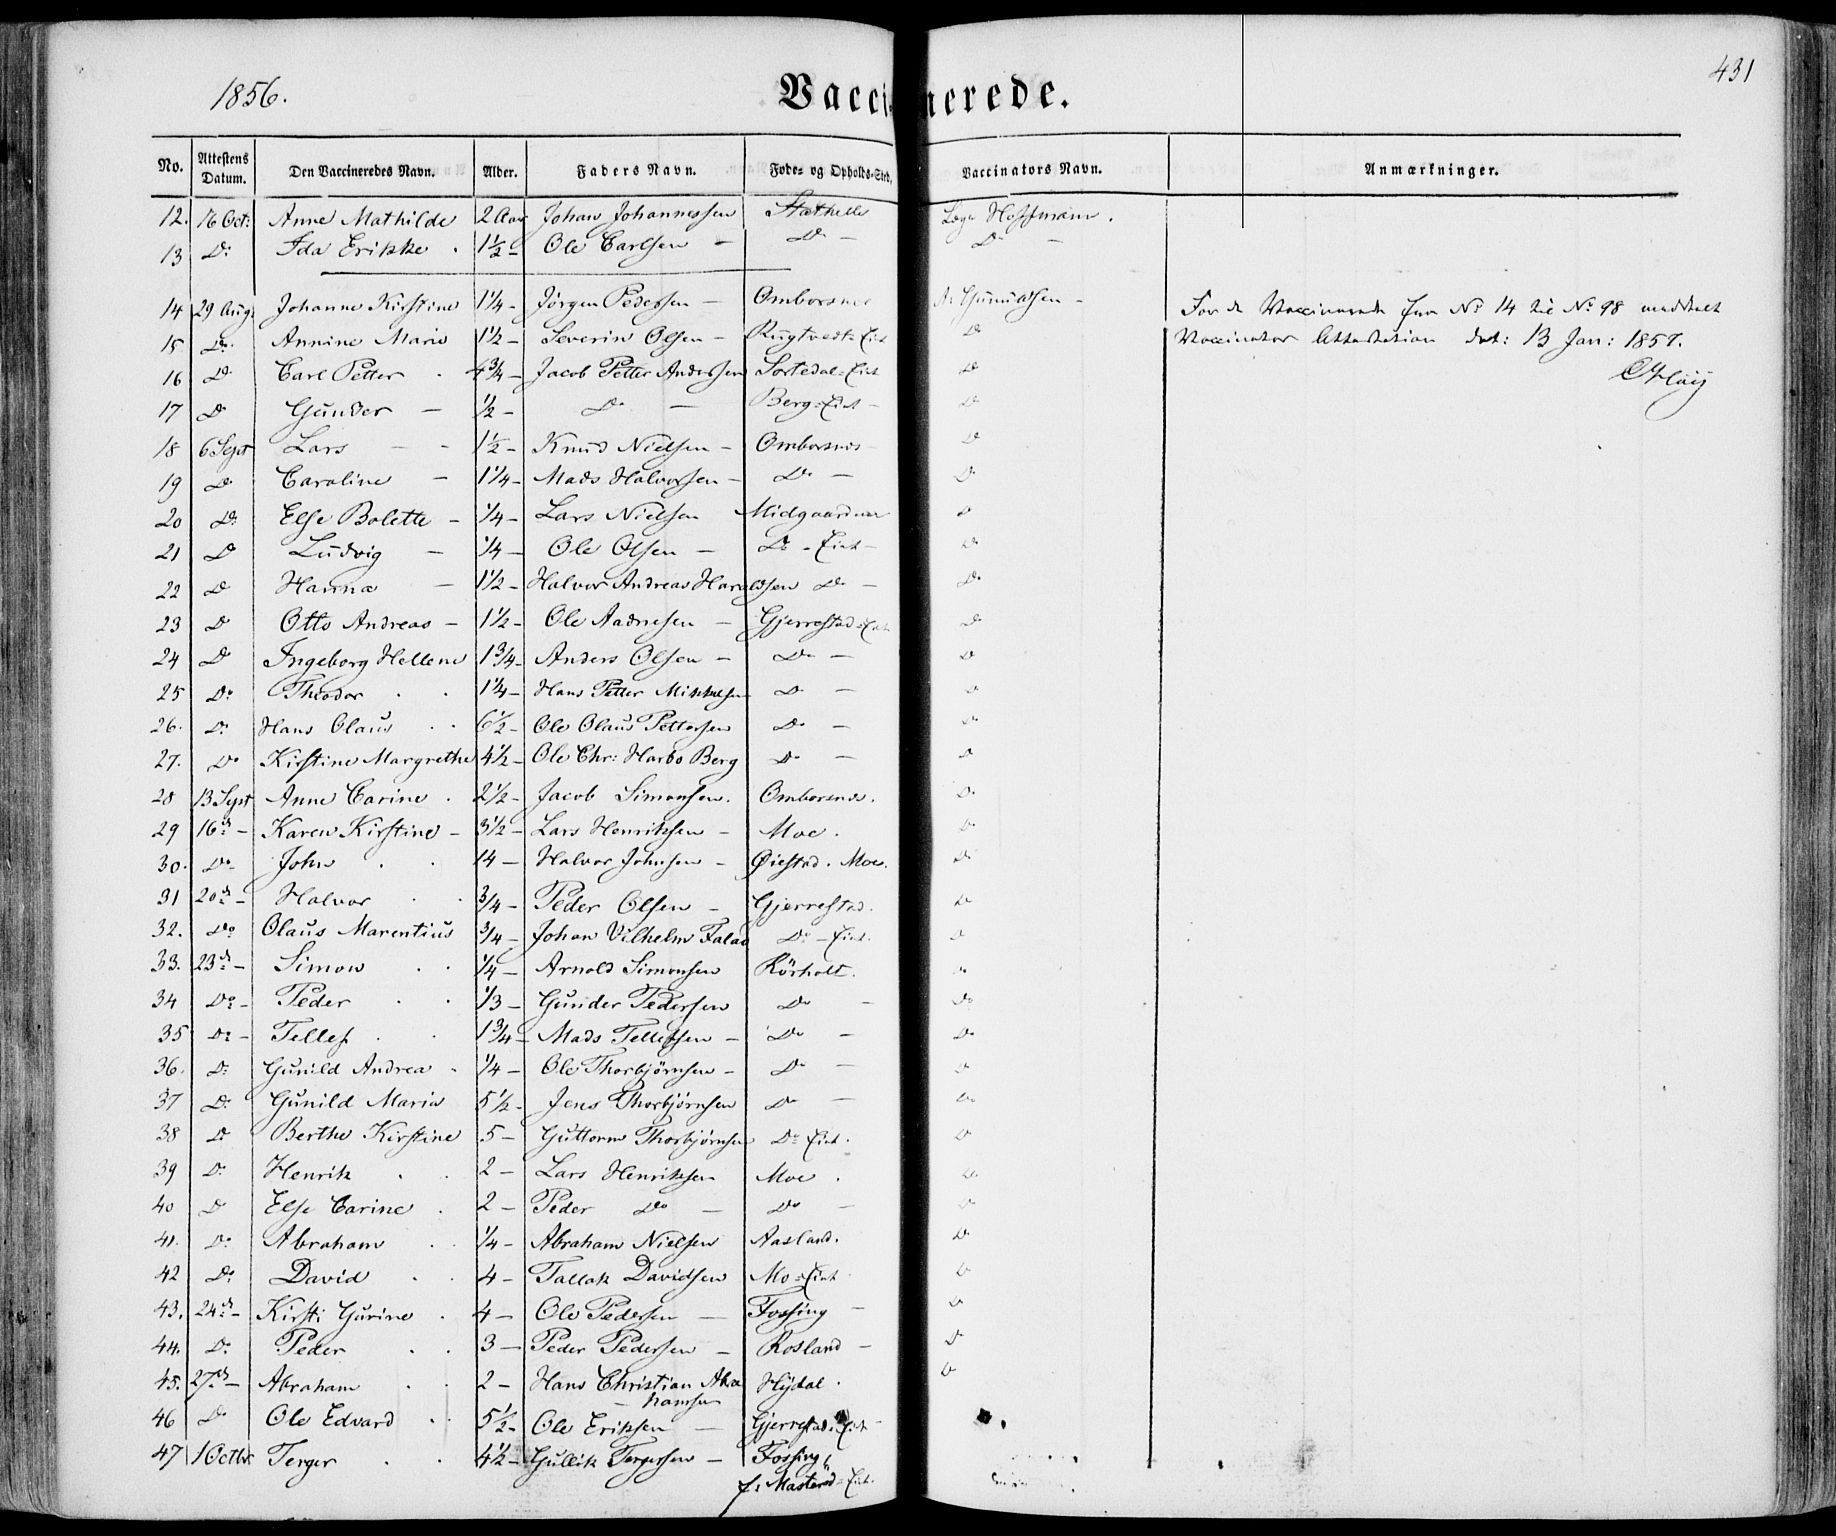 1856.
Vaccinerede.
431
No. Attestens Datum. Den Vaccineredes Navn. Alder. Faders Navn. Føde- og Opholds-Sted. Vaccinators Navn. Anmærkninger.
12. 16 Oct: Anne Mathilde 2 Aar Johan Johannessen Stathelle Læge Hoffmann.
13 Do Ida Erikke 1 1/2 - Ole Carlsen - Do - Do -
14 29 Aug. Johanne Kirstine 1 1/4 - Jørgen Pedersen - Omborsnes For de Vaccinerede fra No 14 til No 98 meddelt
15 Do Annine Marie 1 1/2 - Severin Olsen - Rugtvedt=Eiet Do Vaccinator Attestation dat: 13 Jan: 1857.
16 Do Carl Petter 4 3/4 - Jacob Petter Anderssen Sortedal=Eiet Do
17 Do Gunder - 1/2 - Do - Berg=Eiet - Do
18 6 Sept Lars - 1 1/2 - Knud Nielsen - Omborsnes - Do
19 Do Caroline - 1 1/4 - Mads Halvorsen - Do - Do
20 Do Else Bolette - 1/4 - Lars Nielsen Midgaarden Do
21 Do Ludvig - 1/4 - Ole Olsen - Do - Eiet - Do
22 Do Hanna - 1 1/2 - Halvor Andreas Haraldsen Do - Do
23 Do Otto Andreas - 1 1/2 - Ole Aadnesen - Gjerrestad=Eiet Do
24 Do Ingeborg Hellene 1 3/4 - Anders Olsen - Do - Do
25 Do Theodor 1 1/4 - Hans Petter Mikkelsen Do - Do
26. Do Hans Olaus 6 1/2 - Ole Olaus Pettersen Do - Do
27. Do Kirstine Margrethe 4 1/2 - Ole Chr: Harbo Berg Do - Do
28 13 Sept Anne Carine 2 1/2 - Jacob Simonsen. Omborsnes. Do
29 16de - Karen Kirstine - 3 1/2 - Lars Henriksen - Moe. Do
30. Do John 14 - Halvor Johnsen - Øiestad. Moe. Do
31 20de - Halvor 3/4 - Peder Olsen - Gjerrestad. Do
32. Do Olaus Marentius 3/4 - Johan Vilhelm Falad Do - Eiet. Do
33. 23de - Simon 1/4 - Arnold Simonsen Rörholt. Do
34 Do - Peder 1/3 - Gunder Pedersen Do - Do
35 Do - Tellef 1 3/4 - Mads Tellefsen - Do - Do
36. Do Gunild Andrea 1/4 - Ole Thorbjörnsen - Do - Do
37 Do Gunild Maria 5 1/2 - Jens Thorbjørnsen Do - Do
38 Do Berthe Kirstine 5 - Guttorm Thorbjørnsen Do Eiet. Do
39 Do Henrik 2 - Lars Henriksen Moe. Do
40 Do Else Carine 2 - Peder Do - Do - Do
41. Do Abraham 1/4 - Abraham Nielsen Aasland. Do
42 Do David 4 - Tallak Davidsen Mo=Eiet Do
43. 24de - Kirsti Gurine 4 - Ole Pedersen - Fossing - Do
44. Do Peder 3 - Peder Pedersen - Rosland - Do
45. 27de - Abraham 2 - Hans Christian Abra- Hydal. Do
hamsen
46 Do Ole Edvard 5 1/2 - Ole Eriksen - Gjerrestad. Eiet
47 1 Octbr. Terger 4 1/2 - Gullik Tergersen - Fossing
f: Masterød=Eiet.